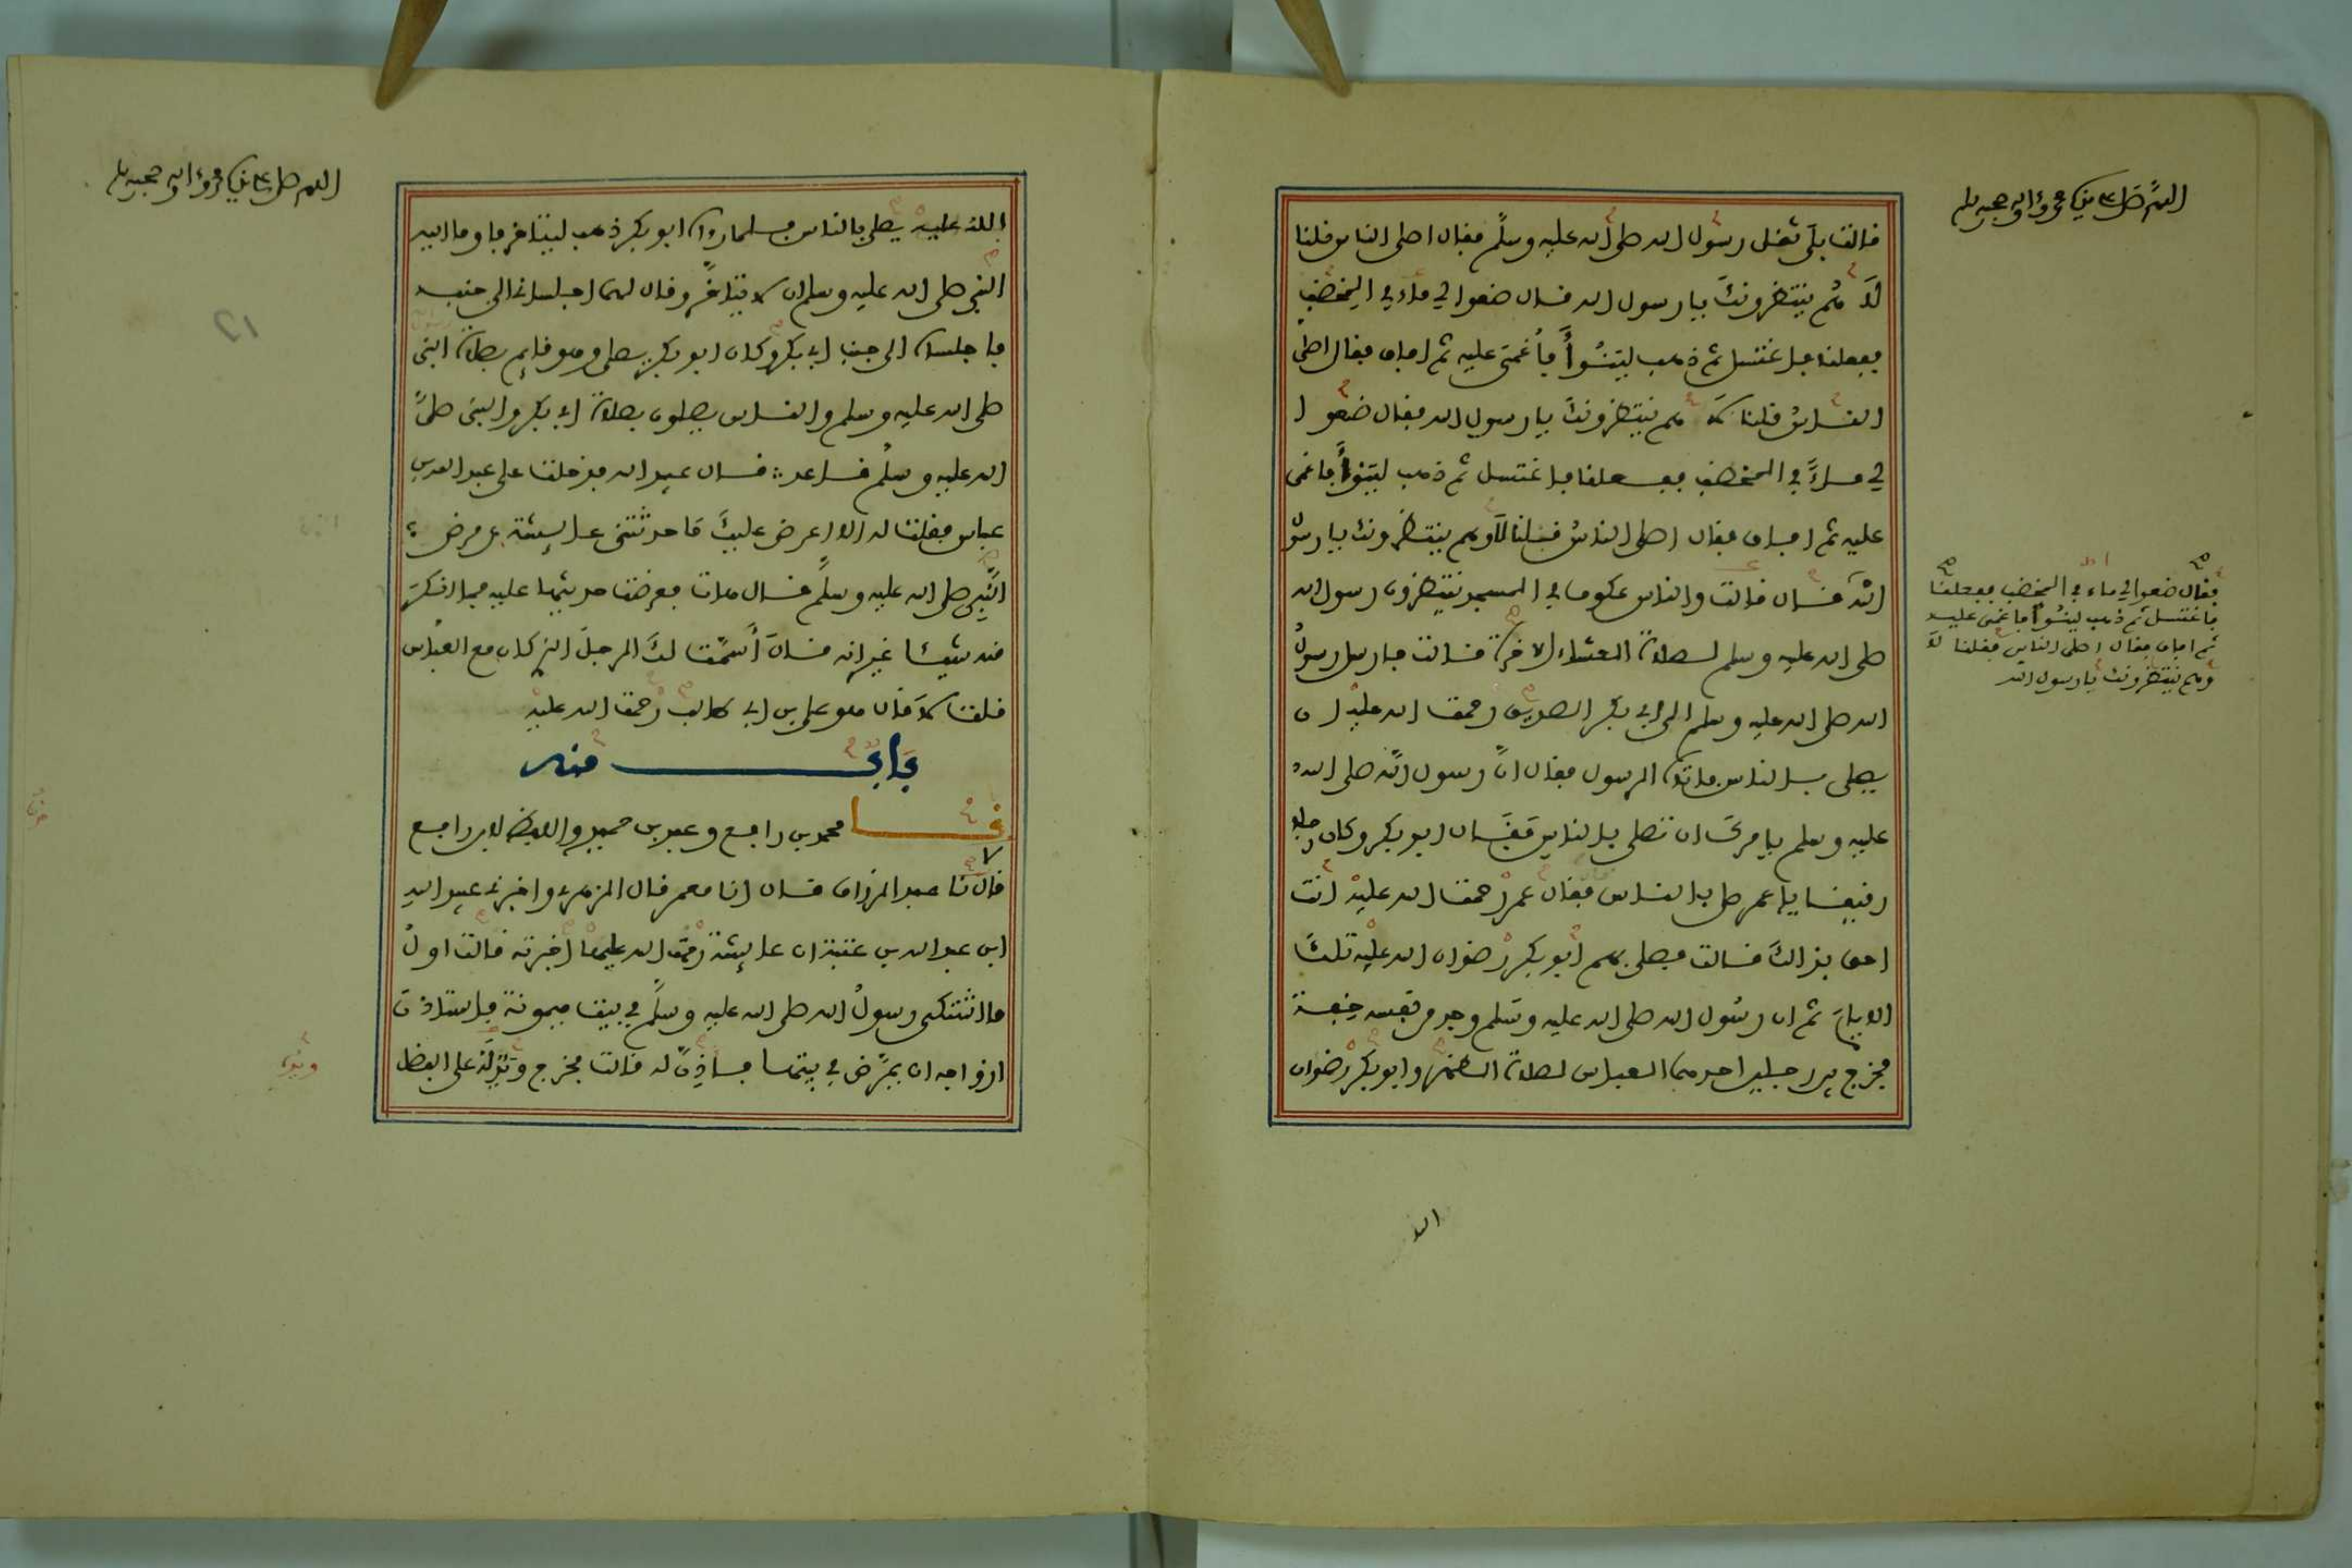 اللهم صل على نبيك محمد وءاله وصحبه وسلم
قالت بلى ثقل رسول الله صلى الله عليه وسلم فقال اصلى الناس قلنا
لا هم ينتظرونك يا رسول الله قال ضعوا لي ماء في المخضب
ففعلنا فاغتسل ثم ذهب لينوأ فأغمى عليه ثم افاق فقال اصلى
الناس قلنا لا هم ينتظرونك يا رسول الله فقال ضعوا
لي ماء في المخضب ففعلنا فاغتسل ثم ذهب لينوأ فاغمى
عليه ثم افاق فقال اصلى الناس فقلنا لا وهم ينتظرونك يا رسول
الله قال قالت والناس عكوف في المسجد ينتظرون رسول الله
صلى الله عليه وسلم لصلاة العشاء الاخرة قالت فارسل رسول
الله صلى الله عليه وسلم الى ابي بكر الصديق رحمة الله عليه ان
يصلى بالناس فاتاه الرسول فقال ان رسول الله صلى الله
عليه وسلم يامرك ان تصلى بالناس فقال ابو بكر وكان رجلا
رقيقا يا عمر صل بالناس فقال عمر رحمة الله عليه انت
احق بذالك قالت فصلى بهم ابو بكر رضوان الله عليه تلك
الايام ثم ان رسول الله صلى الله عليه وسلم وجد من نفسه خفة
فخرج بين رجلين احدهما العباس لصلاة الظهر وابو بكر رضوان
فقال ضعوا لي ماء في المخضب ففعلنا
فاغتسل ثم ذهب لينوأ فاغمى عليه
ثم افاق فقال اصلى الناس فقلنا لا
وهم ينتظرونك يا رسول الله
الله
اللهم صل على نبيك محمد وءاله وصحبه وسلم
الله عليه يصلى بالناس فلما رواه ابو بكر ذهب ليتاخر فاومأ اليه
النبي صلى الله عليه وسلم ان لا يتاخر وقال لهما اجلساني الى جنبه
فاجلساه الى جنب ابي بكر وكان ابو بكر يصلى وهو قايم بصلاة النبي
صلى الله عليه وسلم والناس يصلون بصلاة ابي بكر والنبي صلى
الله عليه وسلم قاعد قال عبيد الله فدخلت على عبد الله بن
عباس فقلت له الا اعرض عليك ما حدثتني عايشة عن مرض
النبي صلى الله عليه وسلم قال هات فعرضت حديثها عليه فما انكر
منه شيئا غير انه قال أسمت لك الرجل الذي كان مع العباس
قلت لا قال هو علي بن ابي طالب رحمة الله عليه
باب منه
نا محمد بن رافع وعبد بن حميد واللفظ لابن رافع
قال نا عبد الرزاق قال انا معمر قال الزهري واخبرني عبيد الله
ابن عبد الله بن عتبة ان عايشة رحمة الله عليها اخبرته قالت اول
ما اشتكى رسول الله صلى الله عليه وسلم في بيت ميمونة فاستاذن
ازواجه ان يمرض في بيتها فاذن له قالت فخرج ويد له على الفضل
12